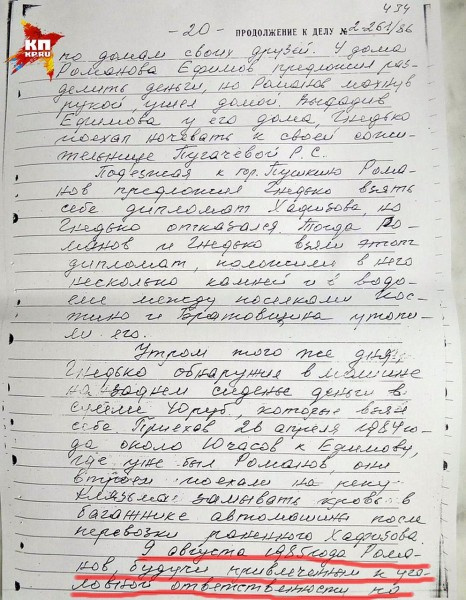 434
КП
KP.RU
-20-
ПРОДОЛЖЕНИЕ К ДЕЛУ №2-261/86
по домам своих друзей. У дома
Романова Ефимов предложил раз-
делить деньги, но Романов махнув
рукой, ушел домой. Высадив
Ефимова у его дома, Гнедько
поехал ночевать к своей сожи-
тельнице Пугачёвой Р.С.
Подъезжая к гор. Пушкино Рома-
нов предложил Гнедько взять
себе дипломат Хафизова, но
Гнедько отказался. Тогда Ро-
манов и Гнедько взяли этот
дипломат, положили в него
несколько камней и в водо-
еме между поселками Кос-
тино и Братовщина утопи-
ли его.
Утром того же дня,
Гнедько обнаружил в машине
на заднем сиденье деньги в
сумме 40 руб, которые взял
себе. Приехав 26 апреля 1984 го-
да около 10 часов к Ефимову,
где уже был Романов, они
втроем поехали на реку
Клязьма замывать кровь в
багажнике автомашины после
перевозки раненного Хафизова.
9 августа 1985 года Рома-
нов, будучи привлеченным к уго-
ловной ответственности по